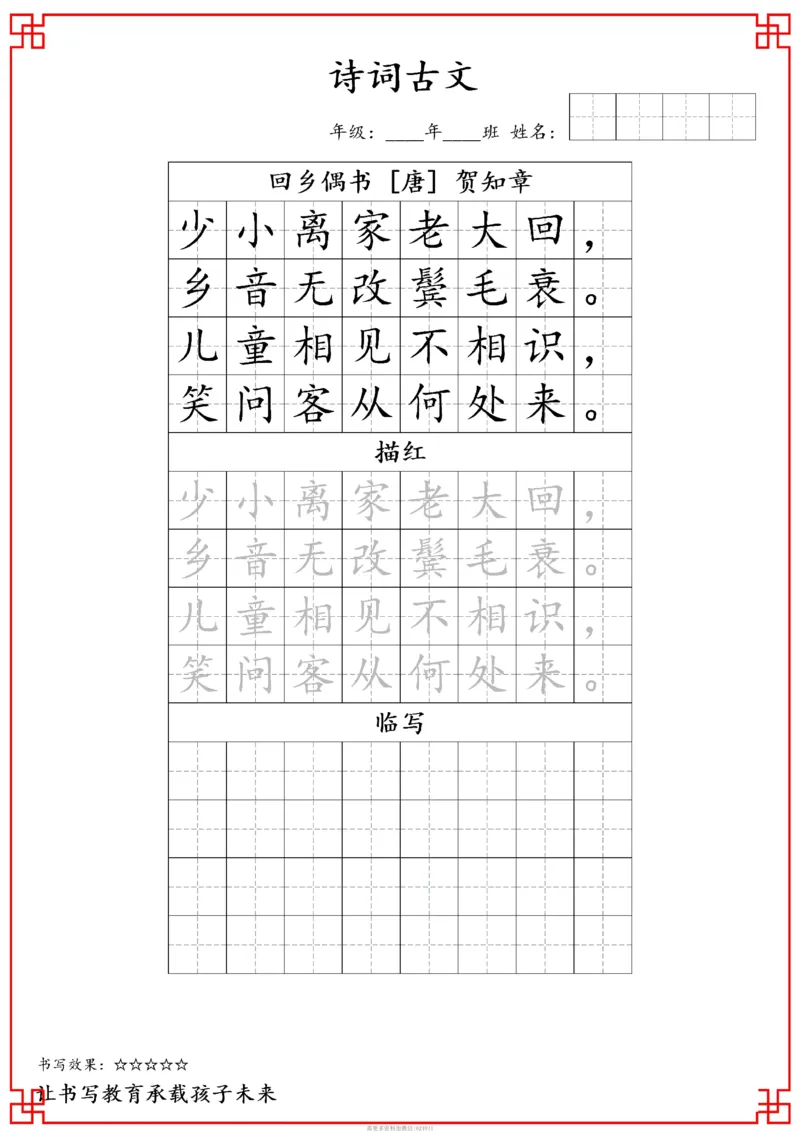 诗词古文
年级：____年____班 姓名：
回乡偶书［唐］贺知章
少小离家老大回，
乡音无改鬓毛衰。
儿童相见不相识，
笑问客从何处来。
描红
少小离家老大回，
乡音无改鬓毛衰。
儿童相见不相识，
笑问客从何处来。
临写
书写效果：☆☆☆☆☆
让书写教育承载孩子未来